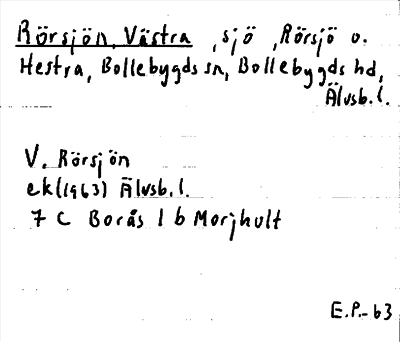 Rörsjön, Västra , sjö , Rörsjö o.
Hestra, Bollebygds sn, Bollebygds hd,
Älvsb. l.
V. Rörsjön
ek (1963) Älvsb. l.
7 C Borås 1 b Morjhult
E.P.-63